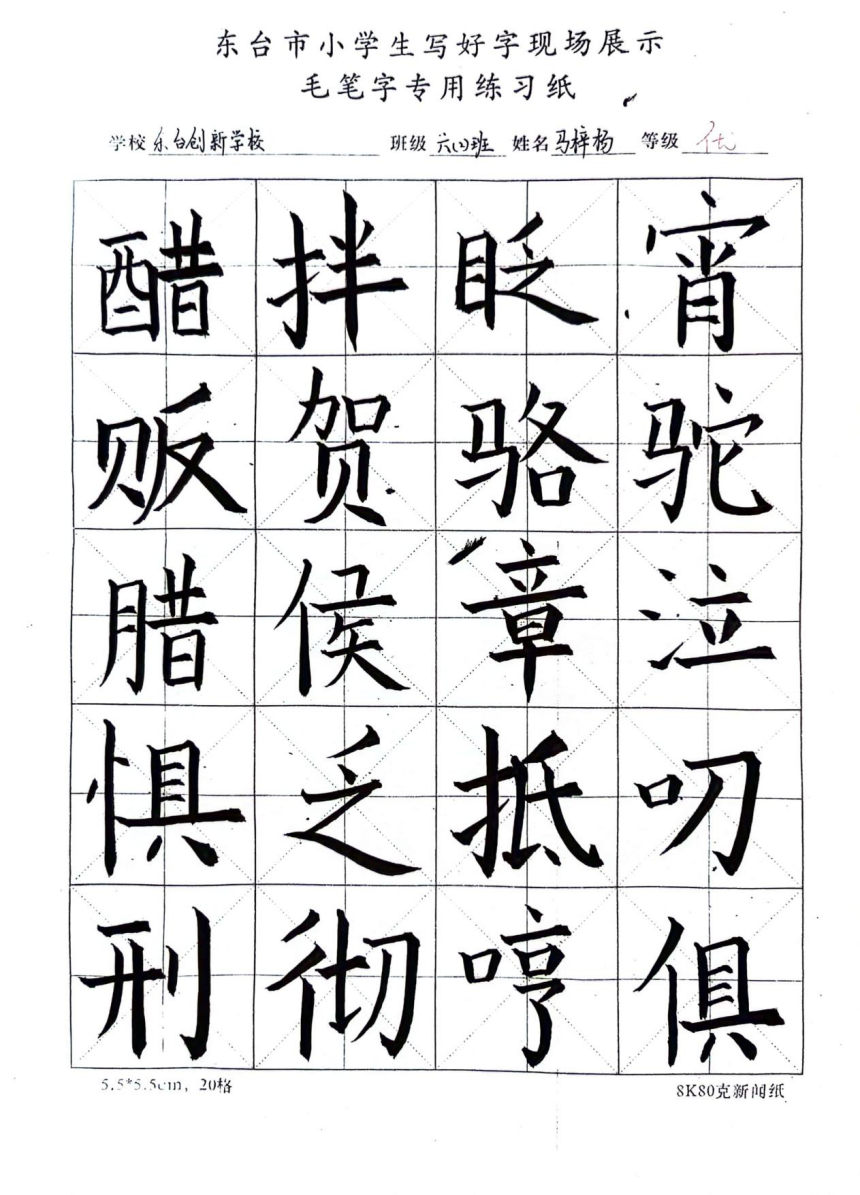 东台市小学生写好字现场展示
毛笔字专用练习纸
学校 东台创新学校 班级 六(1)班 姓名 马梓杨 等级 优
醋拌眨宵
贩贺骆驼
腊侯章泣
惧乏抵叨
刑彻哼俱
5.5*5.5cm，20格 8K80克新闻纸